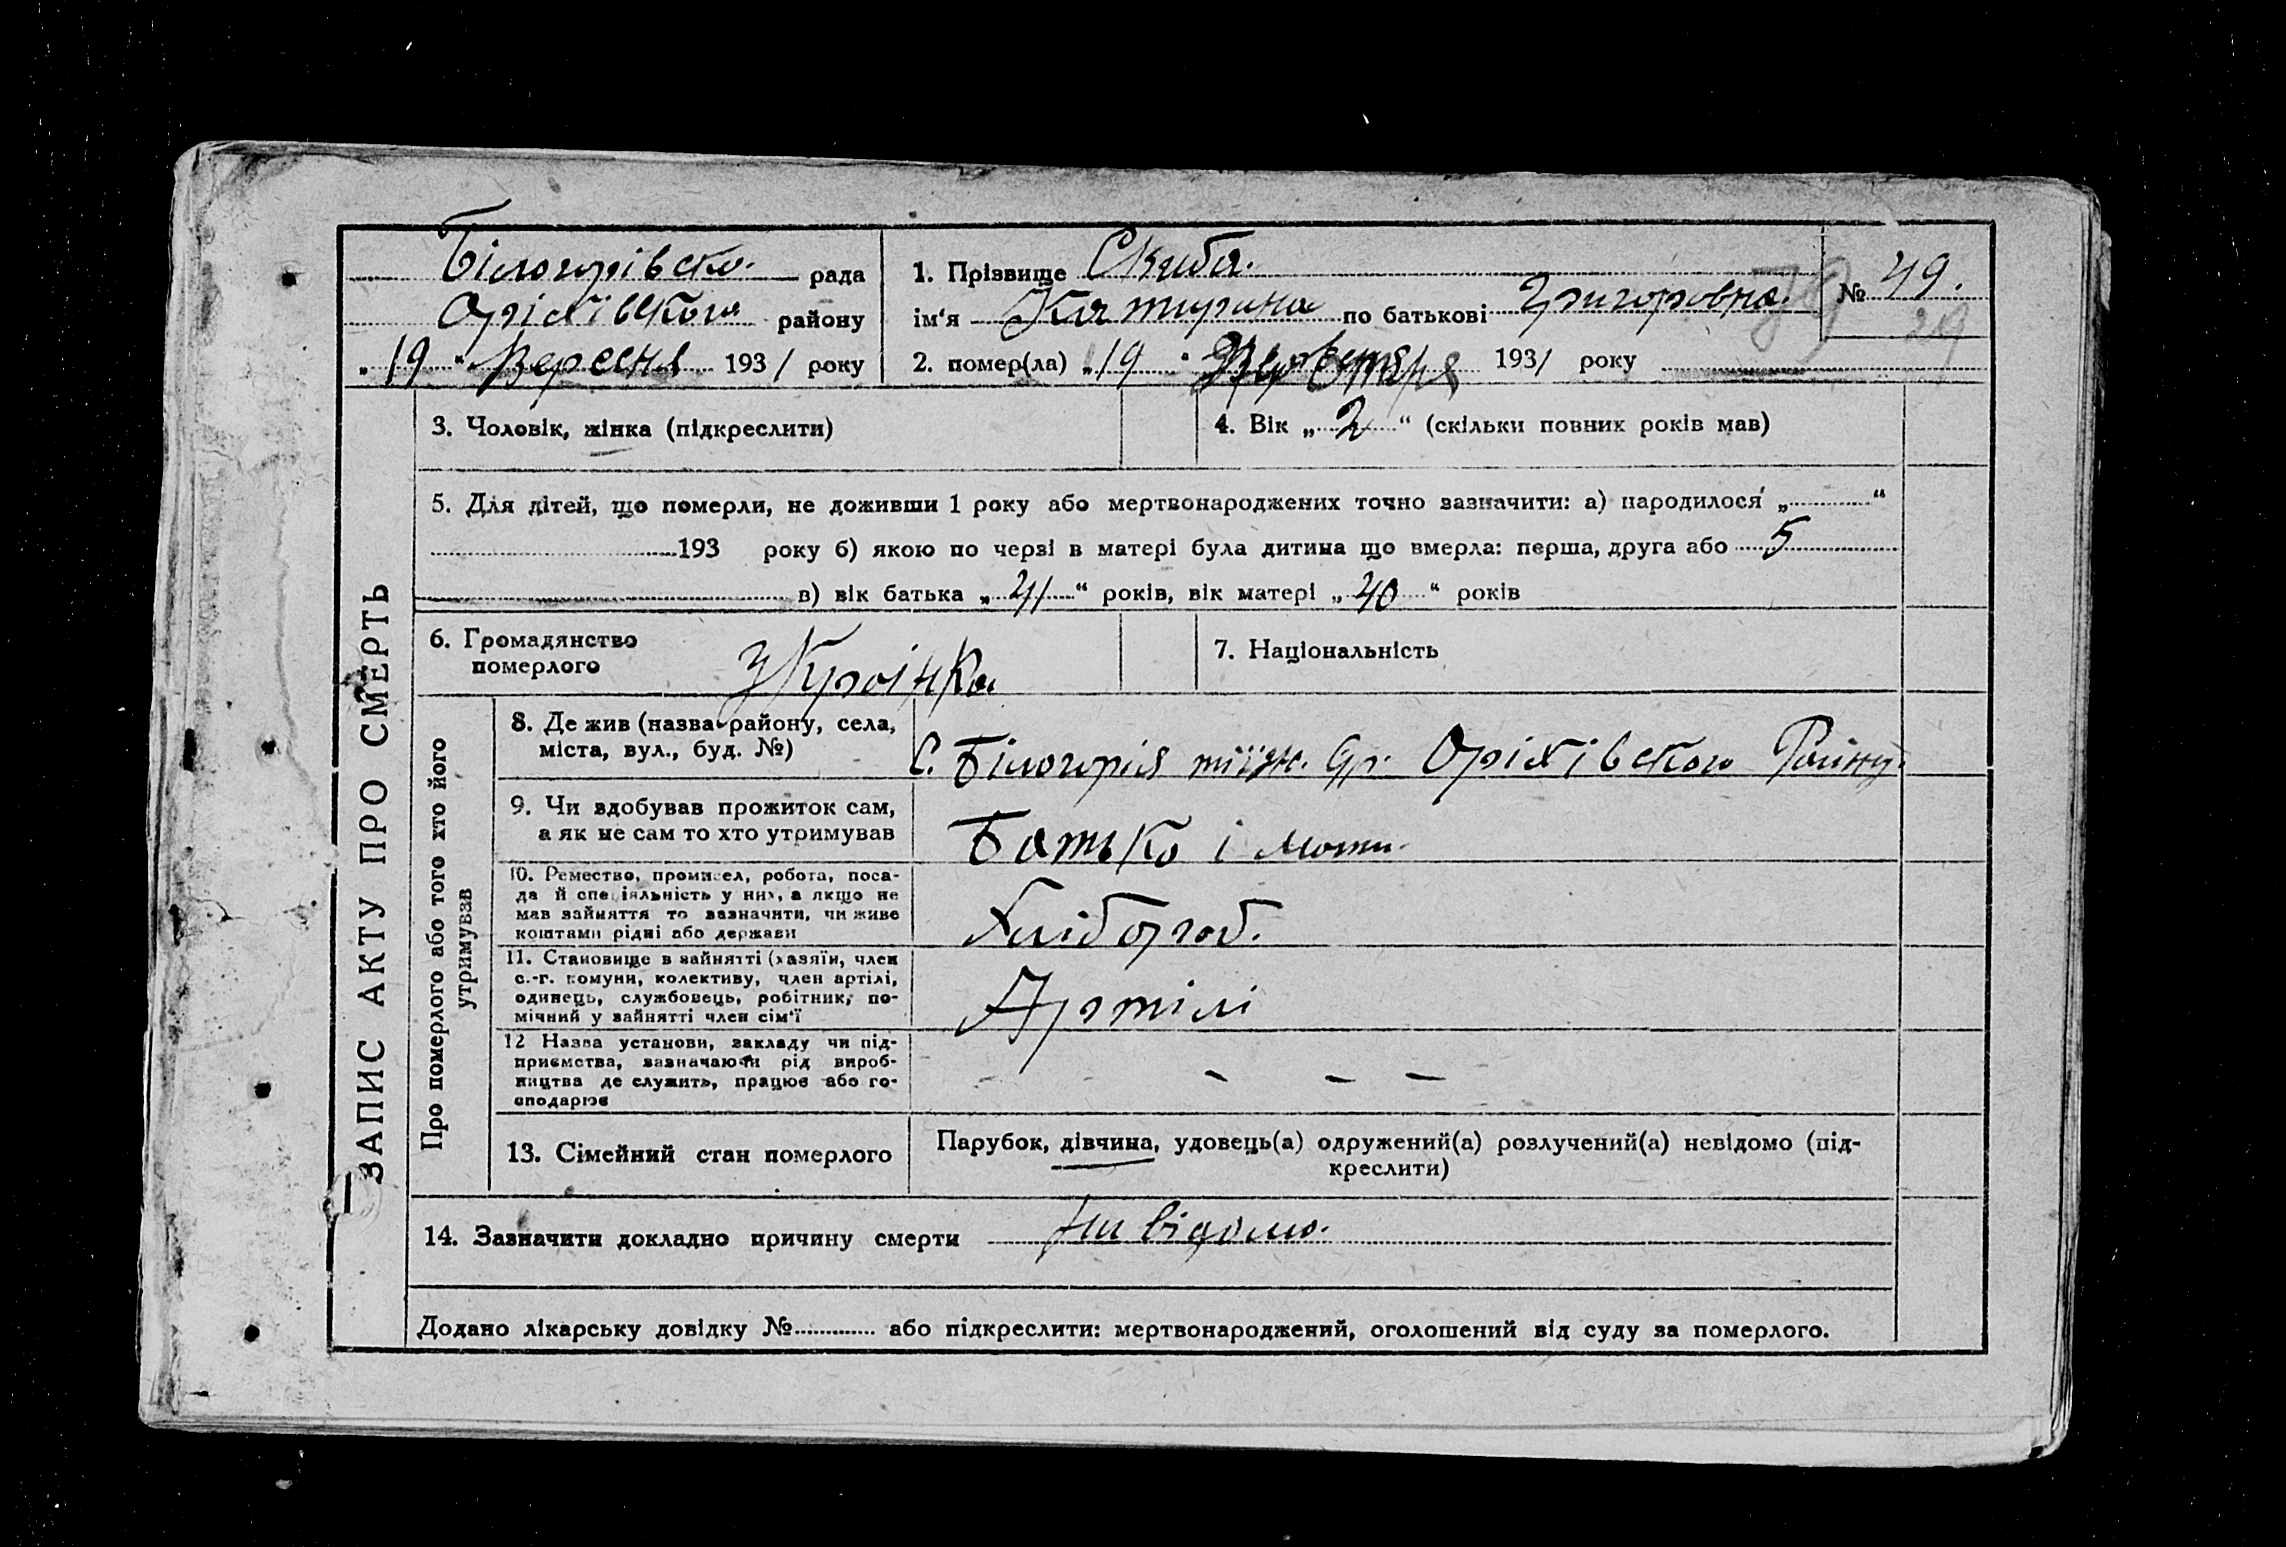 Білогорівско. рада
Оріхівского району
„19“ Вересня 1931 року
1. Прізвище Скиба.
ім‘я Катирина по батькові Григоровна.
№ 49.
2. помер(ла) „19“ 1931 року
3. Чоловік, жінка (підкреслити)
4. Вік „2“ (скільки повних років мав)
5. Для дітей, що померли, не доживши 1 року або мертвонароджених точно зазначити: а) народилося „ “
193 року б) якою по черзі в матері була дитина що вмерла: перша, друга або 5
в) вік батька „41“ років, вік матері „40“ років
6. Громадянство
померлого
Украінка
7. Національність
ЗАПИС АКТУ ПРО СМЕРТЬ
Про померлого або того хто його
утримував
8. Де жив (назва району, села,
міста, вул., буд. №)
С. Білогорія Оріхівского Району.
9. Чи здобував прожиток сам,
а як не сам то хто утримував
Батько і мати.
10. Ремество, промисел, робота, поса-
да й спеціяльність у них, а якщо не
мав зайняття то зазначити, чи живе
коштами рідні або держави
Хлібороб.
11. Становище в зайнятті (хазяїн, член
с.-г. комуни, колективу, член артілі,
одинець, службовець, робітник, по-
мічний у зайнятті член сім‘ї
Артілі
12 Назва установи, закладу чи під-
приємства, зазначаючи рід вироб-
ництва де служить, працює або го-
сподарює
- - -
13. Сімейний стан померлого
Парубок, дівчина, удовець(а) одружений(а) розлучений(а) невідомо (під-
креслити)
14. Зазначити докладно причину смерти Ни відомо.
Додано лікарську довідку № або підкреслити: мертвонароджений, оголошений від суду за померлого.